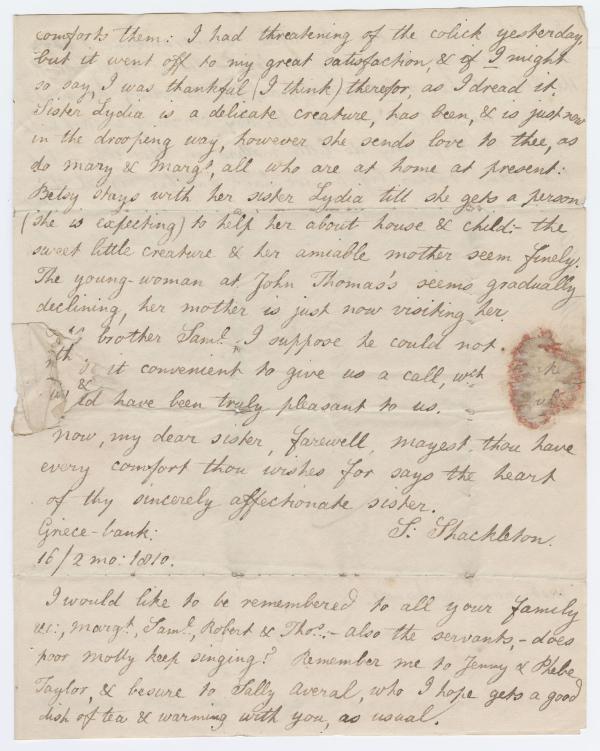 comforts them: I had threatening of the colick yesterday,
but it went off to my great satisfaction, & if I might
so say, I was thankful (I think) therefor, as I dread it.
Sister Lydia is a delicate creature, has been, & is just now
in the drooping way, however she sends love to thee, as
do Mary & Margt, all who are at home at present:
Betsy stays with her sister Lydia till she gets a person
(she is expecting) to help her about house & child:- the
sweet little creature & her amiable mother seem finely.
The young-woman at John Thomas's seems gradually
declining, her mother is just now visiting her.
brother Saml I suppose he could not
it convenient to give us a call, wch
& have been truly pleasant to us.
Now, my dear sister, farewell, mayest thou have
every comfort thou wishes for says the heart
of thy sincerely affectionate sister.
S: Shackleton.
Griece-bank:
16/2 mo: 1810.
I would like to be remembered to all your family
Margt, Saml, Robert & Thos.- also the servants,- does
poor Molly keep singing? Remember me to Jenny & Phebe
Taylor, & besure to Sally Averal, who I hope gets a good
dish of tea & warming with you, as usual.